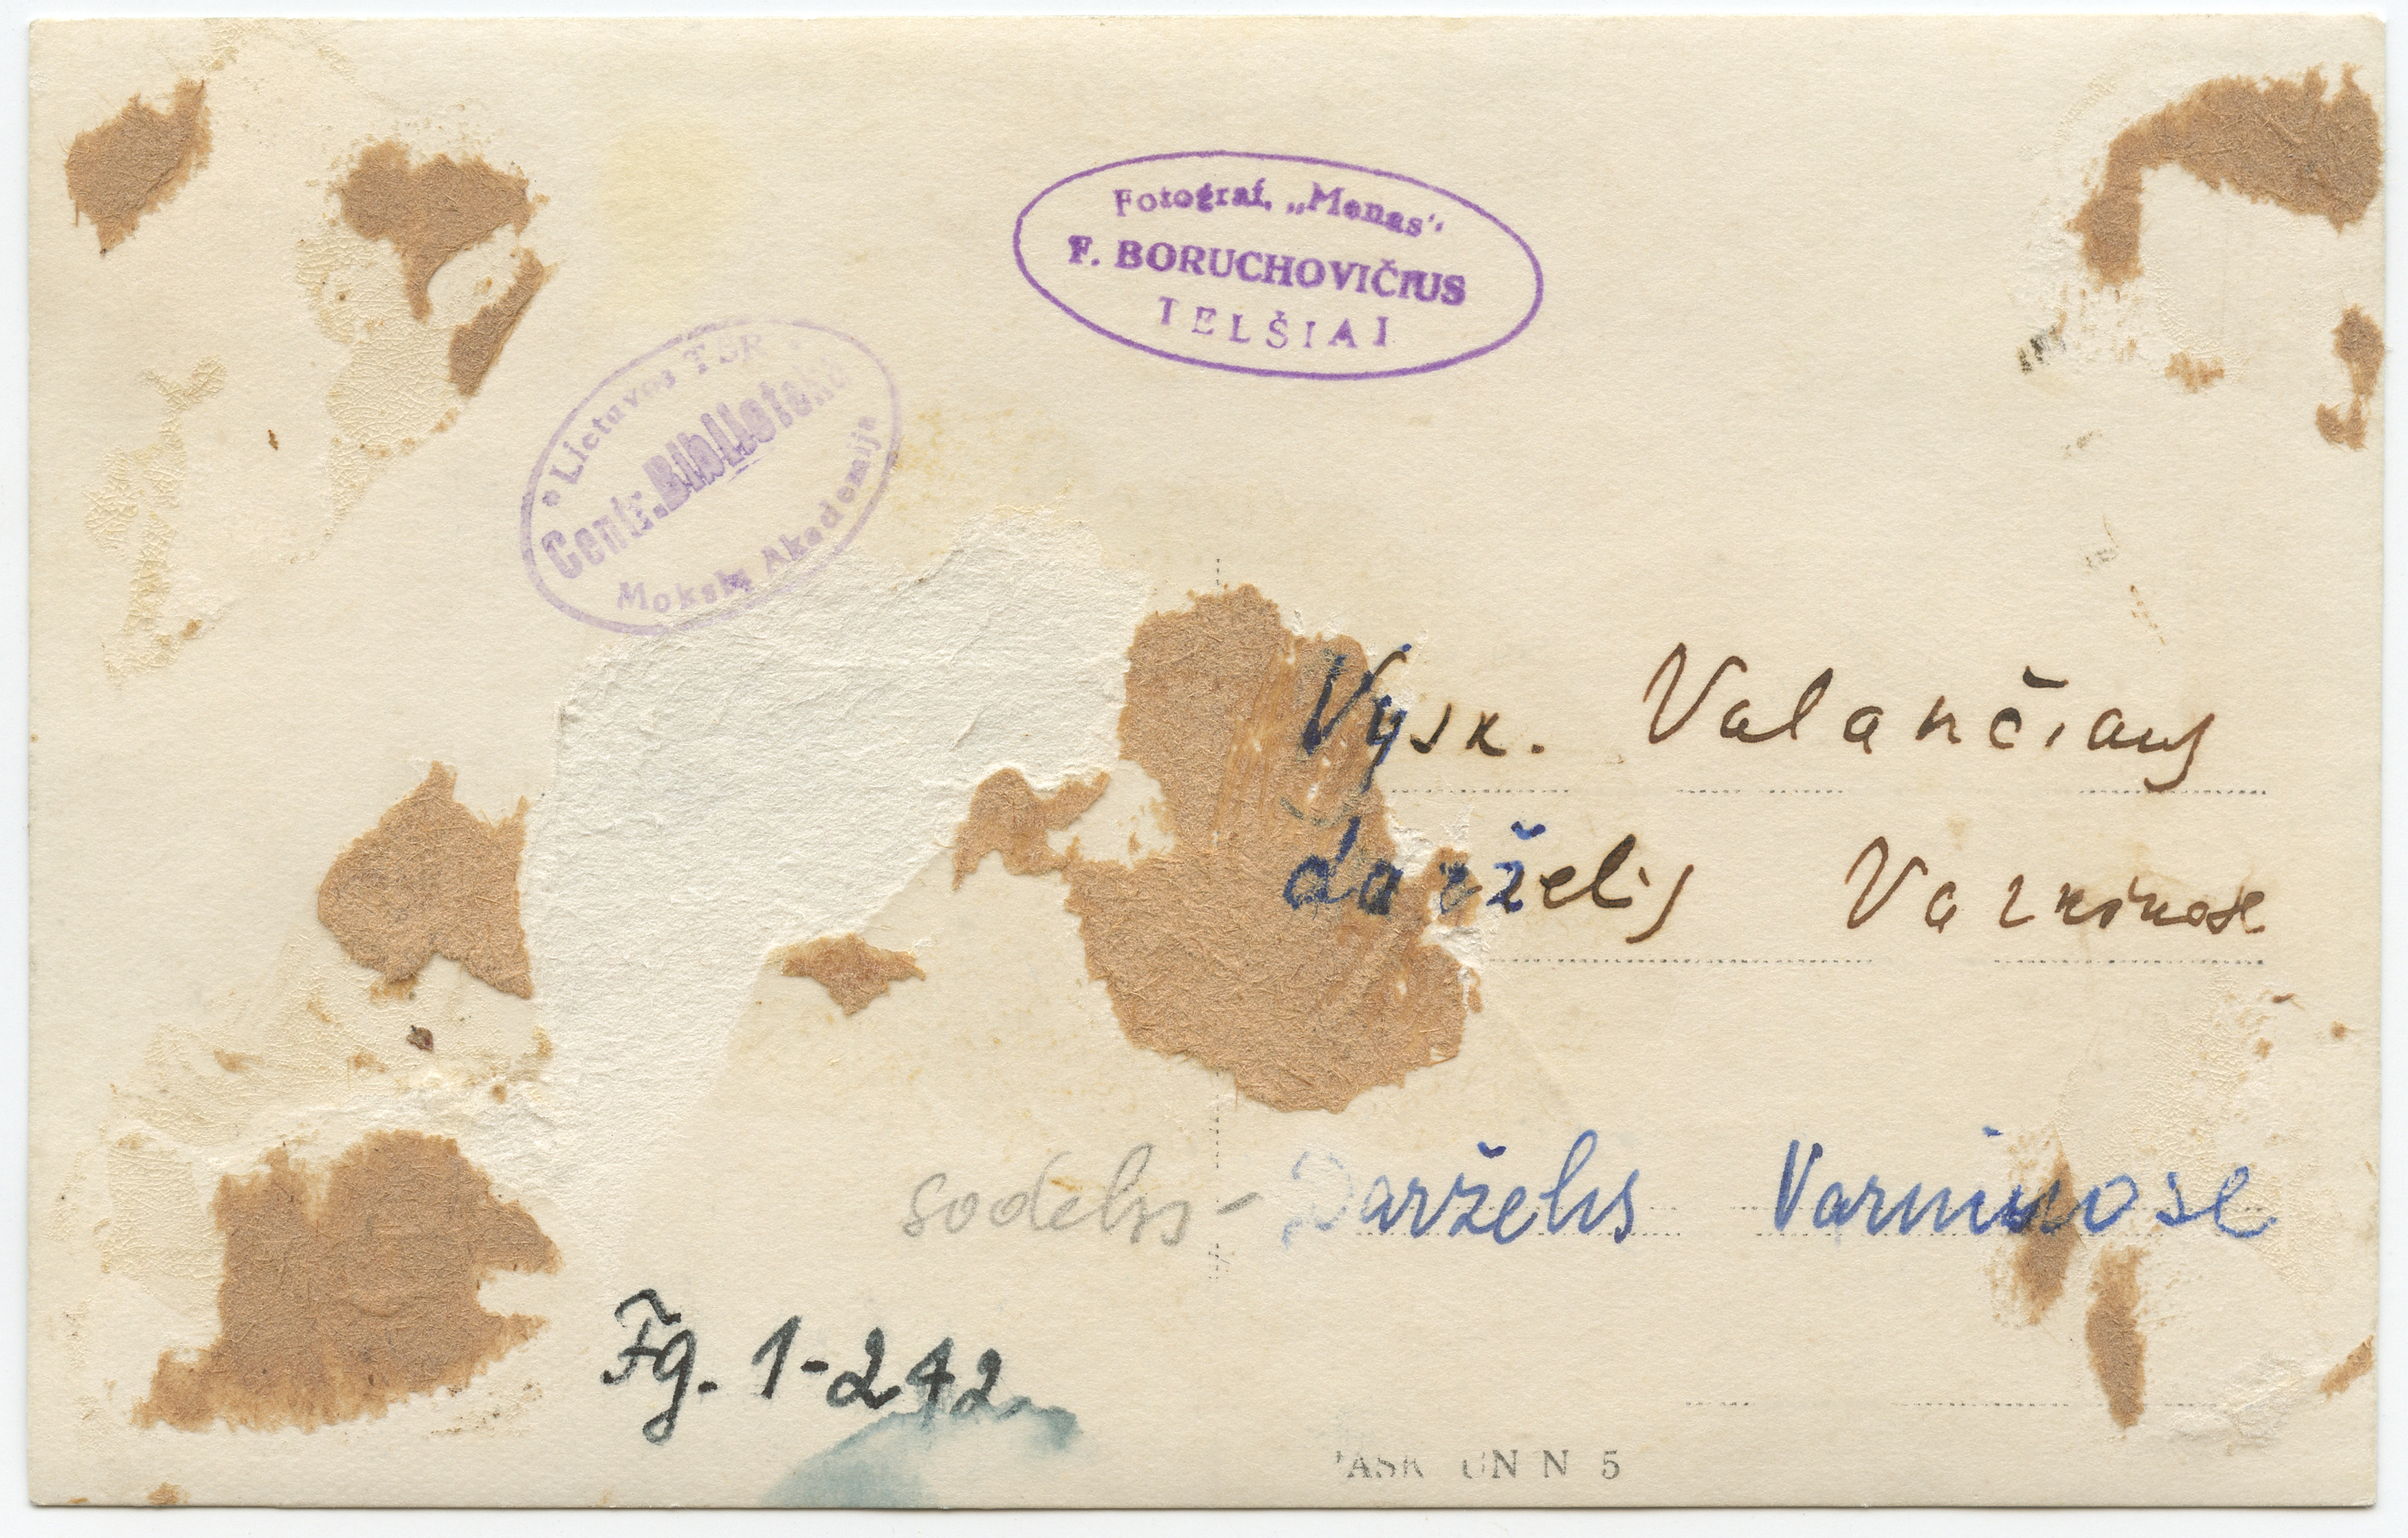 Fotograf. „Menas“
F. BORUCHOVIČIUS
TELŠIAI
Lietuvos TSR
Centr. Biblioteka
Mokslų Akademija
Vysk. Valančiaus
darželis Varniuose
sodelis - Darželis Varniuose
Fg. 1-242
N 5